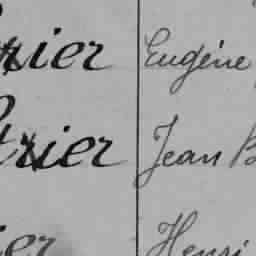 rier Eugène
trier Jean B
ier Henri